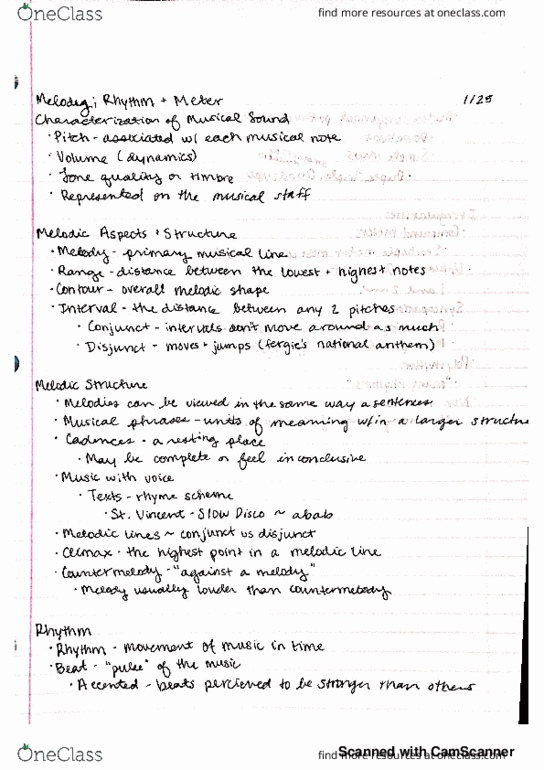 OneClass
find more resources at oneclass.com
Melody; Rhythm + Meter
1/25
Characterization of Musical Sound
· Pitch - associated w/ each musical note
· Volume (dynamics)
· Tone quality or timbre
· Represented on the musical staff
Melodic Aspects + Structure
· Melody - primary musical line
· Range - distance between the lowest + highest notes
· Contour - overall melodic shape
· Interval - the distance between any 2 pitches
· Conjunct - intervals don't move around as much
· Disjunct - moves + jumps (fergie's national anthem)
Melodic Structure
· Melodies can be viewed in the same way a sentences
· Musical phrases - units of meaning w/in a larger structure
· Cadences - a resting place
· May be complete or feel inconclusive
· Music with voice
· Texts - rhyme scheme
· St. Vincent - Slow Disco ~ abab
· Melodic lines ~ conjunct vs disjunct
· Climax - the highest point in a melodic line
· Countermelody - "against a melody"
· Melody usually louder than countermelody
Rhythm
· Rhythm - movement of music in time
· Beat - "pulse" of the music
· Accented - beats percieved to be stronger than others
OneClass
find more resources at oneclass.com
Scanned with CamScanner